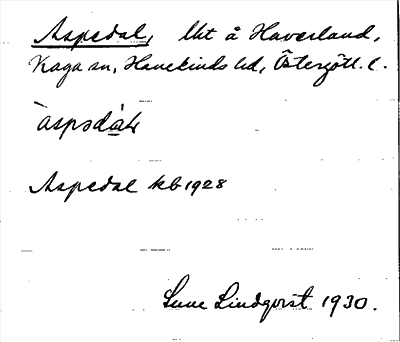 Aspedal, lht å Haverland,
Kaga sn, Hanekinds hd, Östergötl. l.
àspədàɫ
Aspedal kb 1928
Sune Lindqvist 1930.